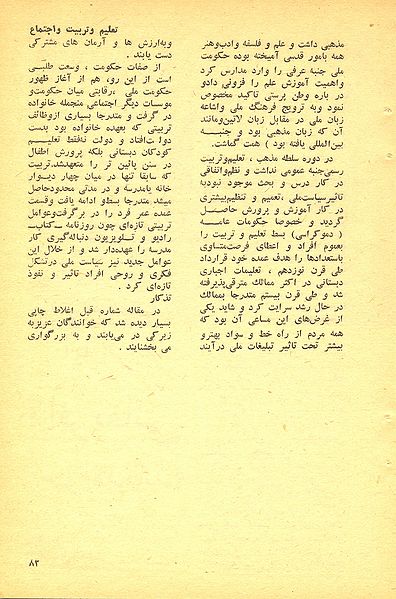 تعلیم وتربیت واجتماع
مذهبی داشت و علم و فلسفه وادب‌وهنر
همه بامور قدسی آمیخته بوده حکومت
ملی جنبه عرفی را وارد مدارس کرد
واهمیت آموزش علم را فزونی دادو
در باره وطن پرستی تاکید مخصوص
نمود وبه ترویج فرهنگ ملی واشاعه
زبان ملی در مقابل زبان لاتین‌ومانند
آن که زبان مذهبی بود و جنبـــه
بین‌المللی یافته بود ) همت گماشت.
در دوره سلطه مذهب ، تعلیم‌وتربیت
رسمی‌جنبه عمومی نداشت و نظم‌واتفاقی
در کار درس و بحث موجود نبودبه
تاثیرسیاست‌ملی ، تعمیم و تنظیم‌بیشتری
در کار آموزش و پرورش حاصـــل
گردید و خصوصا حکومات عامـــه
( دموکراسی) بسط تعلیم و تربیت را
بعموم افراد و اعطای فرصت‌متساوی
باستعدادها را هدف عمده خود قرارداد
طی قرن نوزدهم ، تعلیمات اجباری
دبستانی در اکثر ممالک مترقی‌پذیرفته
شد و طی قرن بیستم متدرجا بممالك
در حال رشد سرایت کرد و شاید یکی
از غرض‌های این مساعی آن بود که
همه مردم از راه خط و سواد بهترو
بیشتر تحت تاثیر تبلیغات ملی درآیند
وبه‌ارزش ها و آرمان های مشترکی
دست یابند .
از صفات حکومت ، وسعت طلبـــی
است از این رو، هم از آغاز ظهور
حکومت ملی ،رقابتی میان حکومت‌و
موسسات دیگر اجتماعی منجمله خانواده
در گرفت و متدرجا بسیاری ازوظائف
تربیتی که بعهده خانواده بود بدست
دولت‌افتاد و دولت نه‌فقط تعلیـــم
کودکان دبستانی بلکه پرورش اطفال
در سنن پائین تر را متعهدشد.تربیت
که سابقا تنها در میان چهار دیـوار
خانه یامدرسه و در مدتی محدودحاصل
میشد متدرجا بسطو ادامه یافت وقسمت
عمده عمر فرد را در برگرفت‌وعوامل
تربیتی تازه‌ای چون روزنامه ـکتاب‌ــ
رادیو و تلویزیون دنباله‌گیری کار
مدرسه را عهده‌دار شد و از خلال این
عوامل جدید نیز سیاست ملی درتشکل
فکری و روحی افراد تاثیر و نفوذ
تازه‌ای کرد .
تذکار
در مقاله شماره قبل اغلاط چاپی
بسیار دیده شد که خوانندگان عزیزبه
زیرکی در می‌یابند و به بزرگواری
می بخشایند .
۸۳